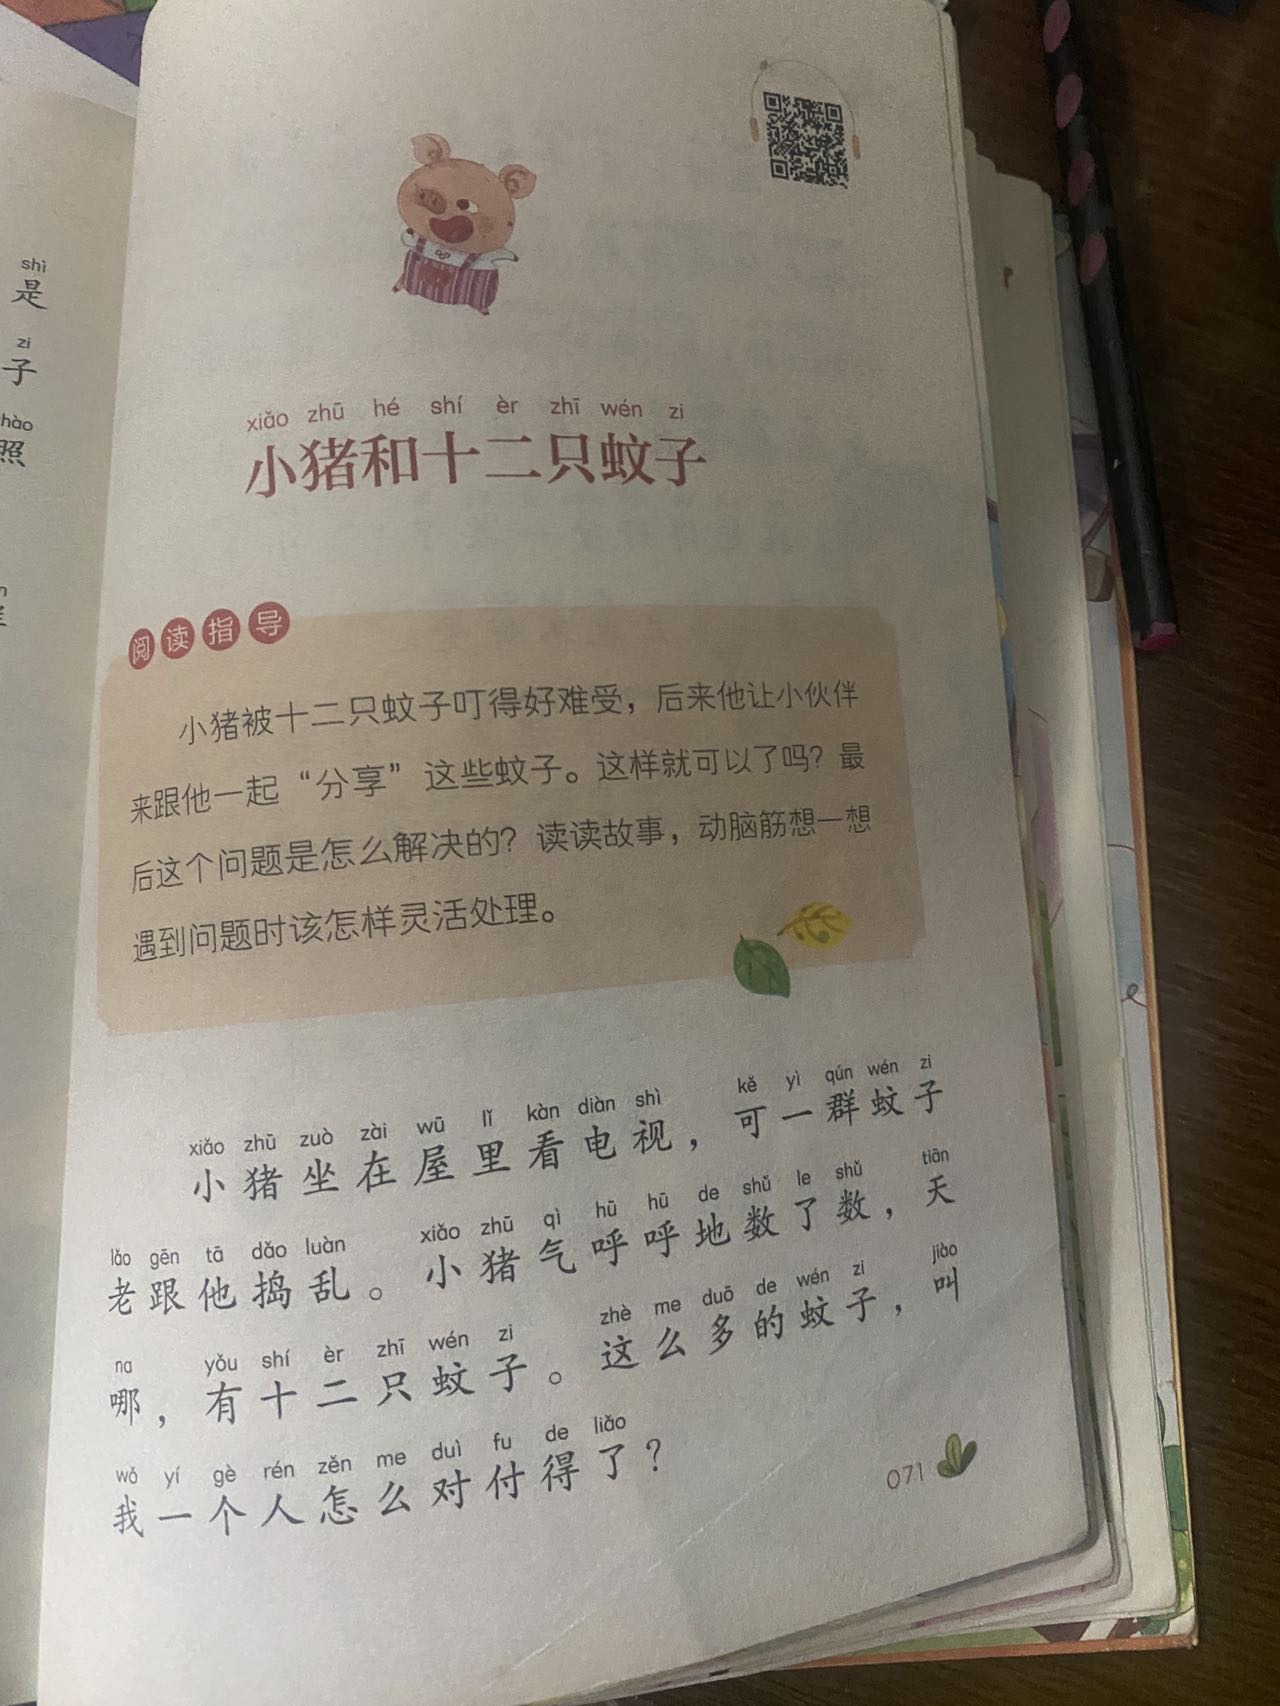 shì
是
zi
子
照
xiǎo zhū hé shí èr zhī wén zi
小猪和十二只蚊子
阅读指导
小猪被十二只蚊子叮得好难受，后来他让小伙伴
来跟他一起“分享”这些蚊子。这样就可以了吗？最
后这个问题是怎么解决的？读读故事，动脑筋想一想
遇到问题时该怎样灵活处理。
xiǎo zhū zuò zài wū lǐ kàn diàn shì kě yì qún wén zi
小猪坐在屋里看电视，可一群蚊子
lǎo gēn tā dǎo luàn xiǎo zhū qì hū hū de shǔ le shǔ tiān
老跟他捣乱。小猪气呼呼地数了数，天
na yǒu shí èr zhī wén zi zhè me duō de wén zi jiào
哪，有十二只蚊子。这么多的蚊子，叫
wǒ yí gè rén zěn me duì fu de liǎo
我一个人怎么对付得了？
071